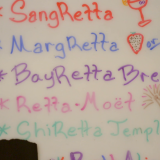 * SangRetta
* MargRetta
* BayRetta Bre
* Retta-Moët
* GhiRetta Temp